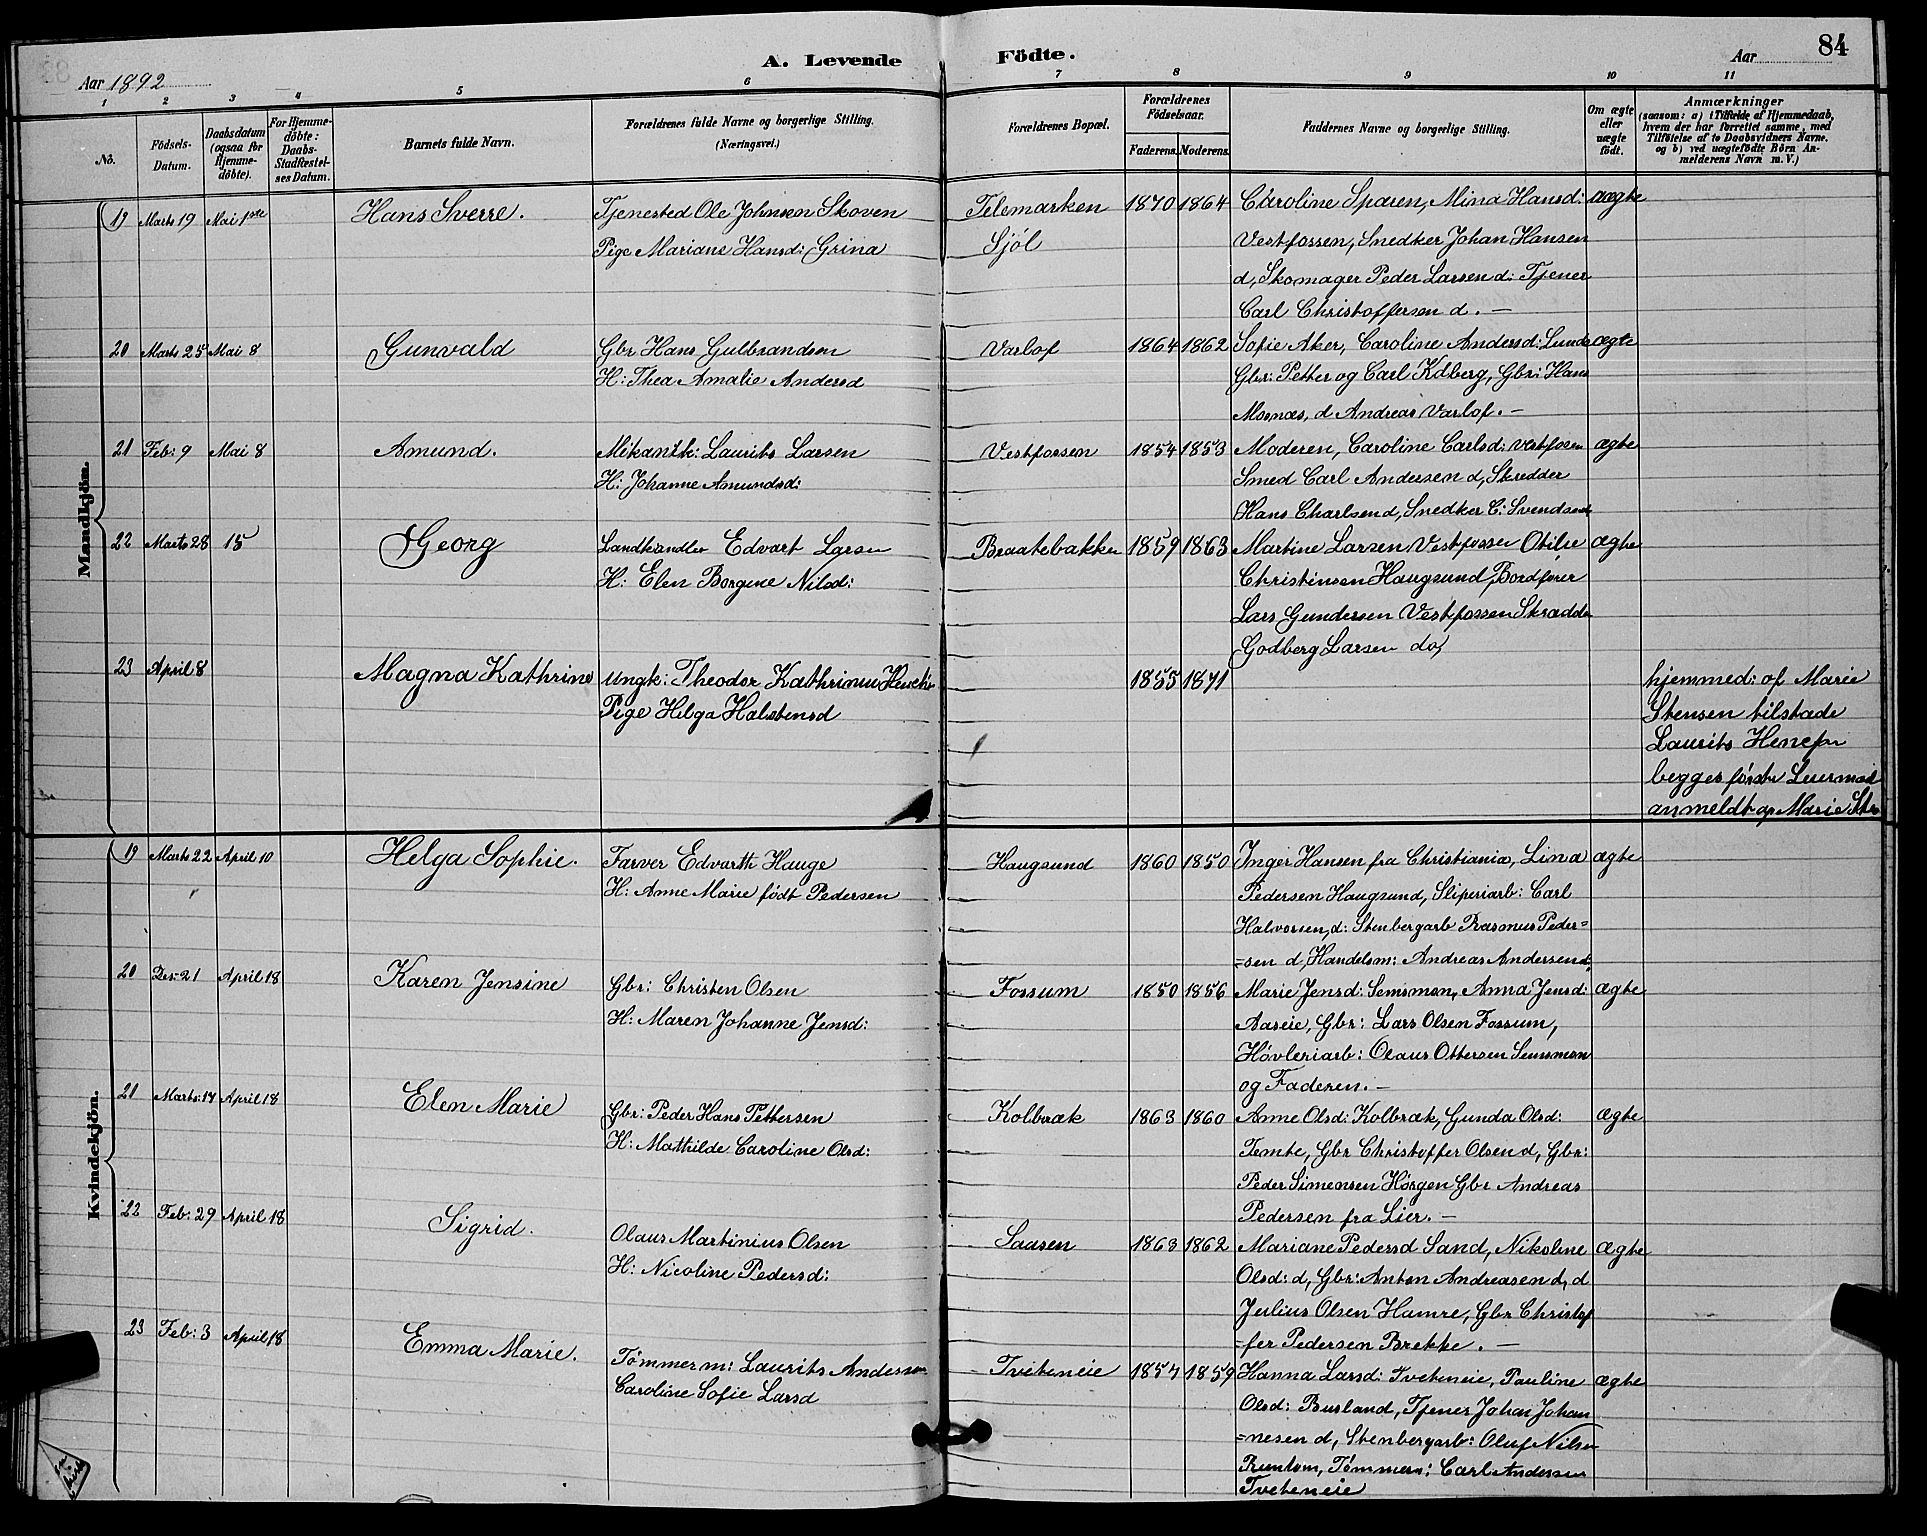 Aar 1892
A. Levende Födte.
Aar
84
1 2 3 4 5 6 7 8 9 10 11
No.
Födsels-Datum.
Daabsdatum (ogsaa for Hjemme-döbte).
For Hjemme-döbte: Daabs-Stadfæstel-ses Datum.
Barnets fulde Navn.
Forældrenes fulde Navne og borgerlige Stilling. (Næringsvei.)
Forældrenes Bopæl.
Forældrenes Födselsaar.
Faderens. Moderens.
Faddernes Navne og borgerlige Stilling.
Om ægte eller uægte födt.
Anmærkninger
(saasom: a) i Tilfælde af Hjemmedaab,
hvem der har forrettet samme, med
Tilföielse af to Daabsvidners Navne.
og b) ved uægtefödte Börn An-
melderens Navn m. V.)
Mandkjön.
19 Marts 19 Mai 1ste Hans Sverre. Tjenested Ole Johnsen Skoven Telemarken 1870 1864 Caroline Sparen, Mina Hansd: uægte
Pige Mariane Hansd: Grina Sjöl Vestfossen, Snedker Johan Hansen
d, Skomager Peder Larsen d: Tjener
Carl Christoffersen d. —
20 Marts 25 Mai 8 Gunvald Gbr Hans Gulbrandsen Varlof 1864 1862 Sofie Aker, Caroline Andersd: Lunde ægte
H: Thea Amalie Andersd Gbr: Petter og Carl Kdberg, Gbr: Hans
Mosnæs, d Andreas Varlof. —
21 Feb: 9 Mai 8 Amund. Mekanik: Laurits Larsen Vestfossen 1854 1853 Moderen, Caroline Carlsd: Vestfossen ægte
H: Johanne Amundsd: Smed Carl Andersen d, Skredder
Hans Charlsen d, Snedker C: Svendsen
22 Marts 28 15 Georg Landhandler Edvart Larsen Braatebakken 1859 1863 Martine Larsen Vestfossen Otilie ægte
H: Elen Borgine Nilsd: Christensen Haugsund, Bordfører
Lars Gundersen Vestfossen Skrædder
Godberg Larsen do,
23 April 8 Magna Kathrine Ungk: Theodor Kathrinus 1855 1871 hjemmed: af Marie
Pige Helga Halstensd Stensen tilstæde
Laurits
begges første Leiermaal
anmeldt af Marie
Kvindekjön.
19 Marts 22 April 10 Helga Sophie. Farver Edvarth Hauge Haugsund 1860 1850 Inger Hansen fra Christiania, Lina ægte
H: Anne Marie født Pedersen Pedersen Haugsund, Sliperiarb: Carl
Halvorsen, d: Stenbergarb Rasmus Peder=
=sen d, Handelsm: Andreas Andersen d:
20 Des: 21 April 18 Karen Jensine Gbr: Christen Olsen Fossum 1850 1856 Marie Jensd: Semsmoen, Anna Jensd: ægte
H: Maren Johanne Jensd: Aaseie, Gbr: Lars Olsen Fossum,
Høvleriarb: Olaus Ottersen Semsmoen
og Faderen. —
21 Marts: 17 April 18 Elen Marie Gbr: Peder Hans Pettersen Kolbræk 1863 1860 Anne Olsd: Kolbræk, Gunda Olsd: ægte
H: Mathilde Caroline Olsd: Temte, Gbr Christoffer Olsen d, Gbr:
Peder Simensen Horgen Gbr Andreas
Pedersen fra Lier. —
22 Feb: 29 April 18 Sigrid. Olaus Martinius Olsen Saasen 1863 1862 Mariane Pedersd Sand, Nikoline ægte
H: Nicoline Pedersd: Olsd: d, Gbr: Anton Andreasen d, d
Julius Olsen Hamre, Gbr Christof
=fer Pedersen Brekke. —
23 Feb: 3 April 18 Emma Marie. Tømmerm: Laurits Andersen Tveteneie 1854 1859 Hanna Larsd: Tveteneie, Pauline ægte
Caroline Sofie Larsd Olsd: Busland, Tjener Johan Johan
=nesen d, Stenbergarb: Oluf Nilsen
Runtom, Tømmerm: Carl Andersen
Tveteneie